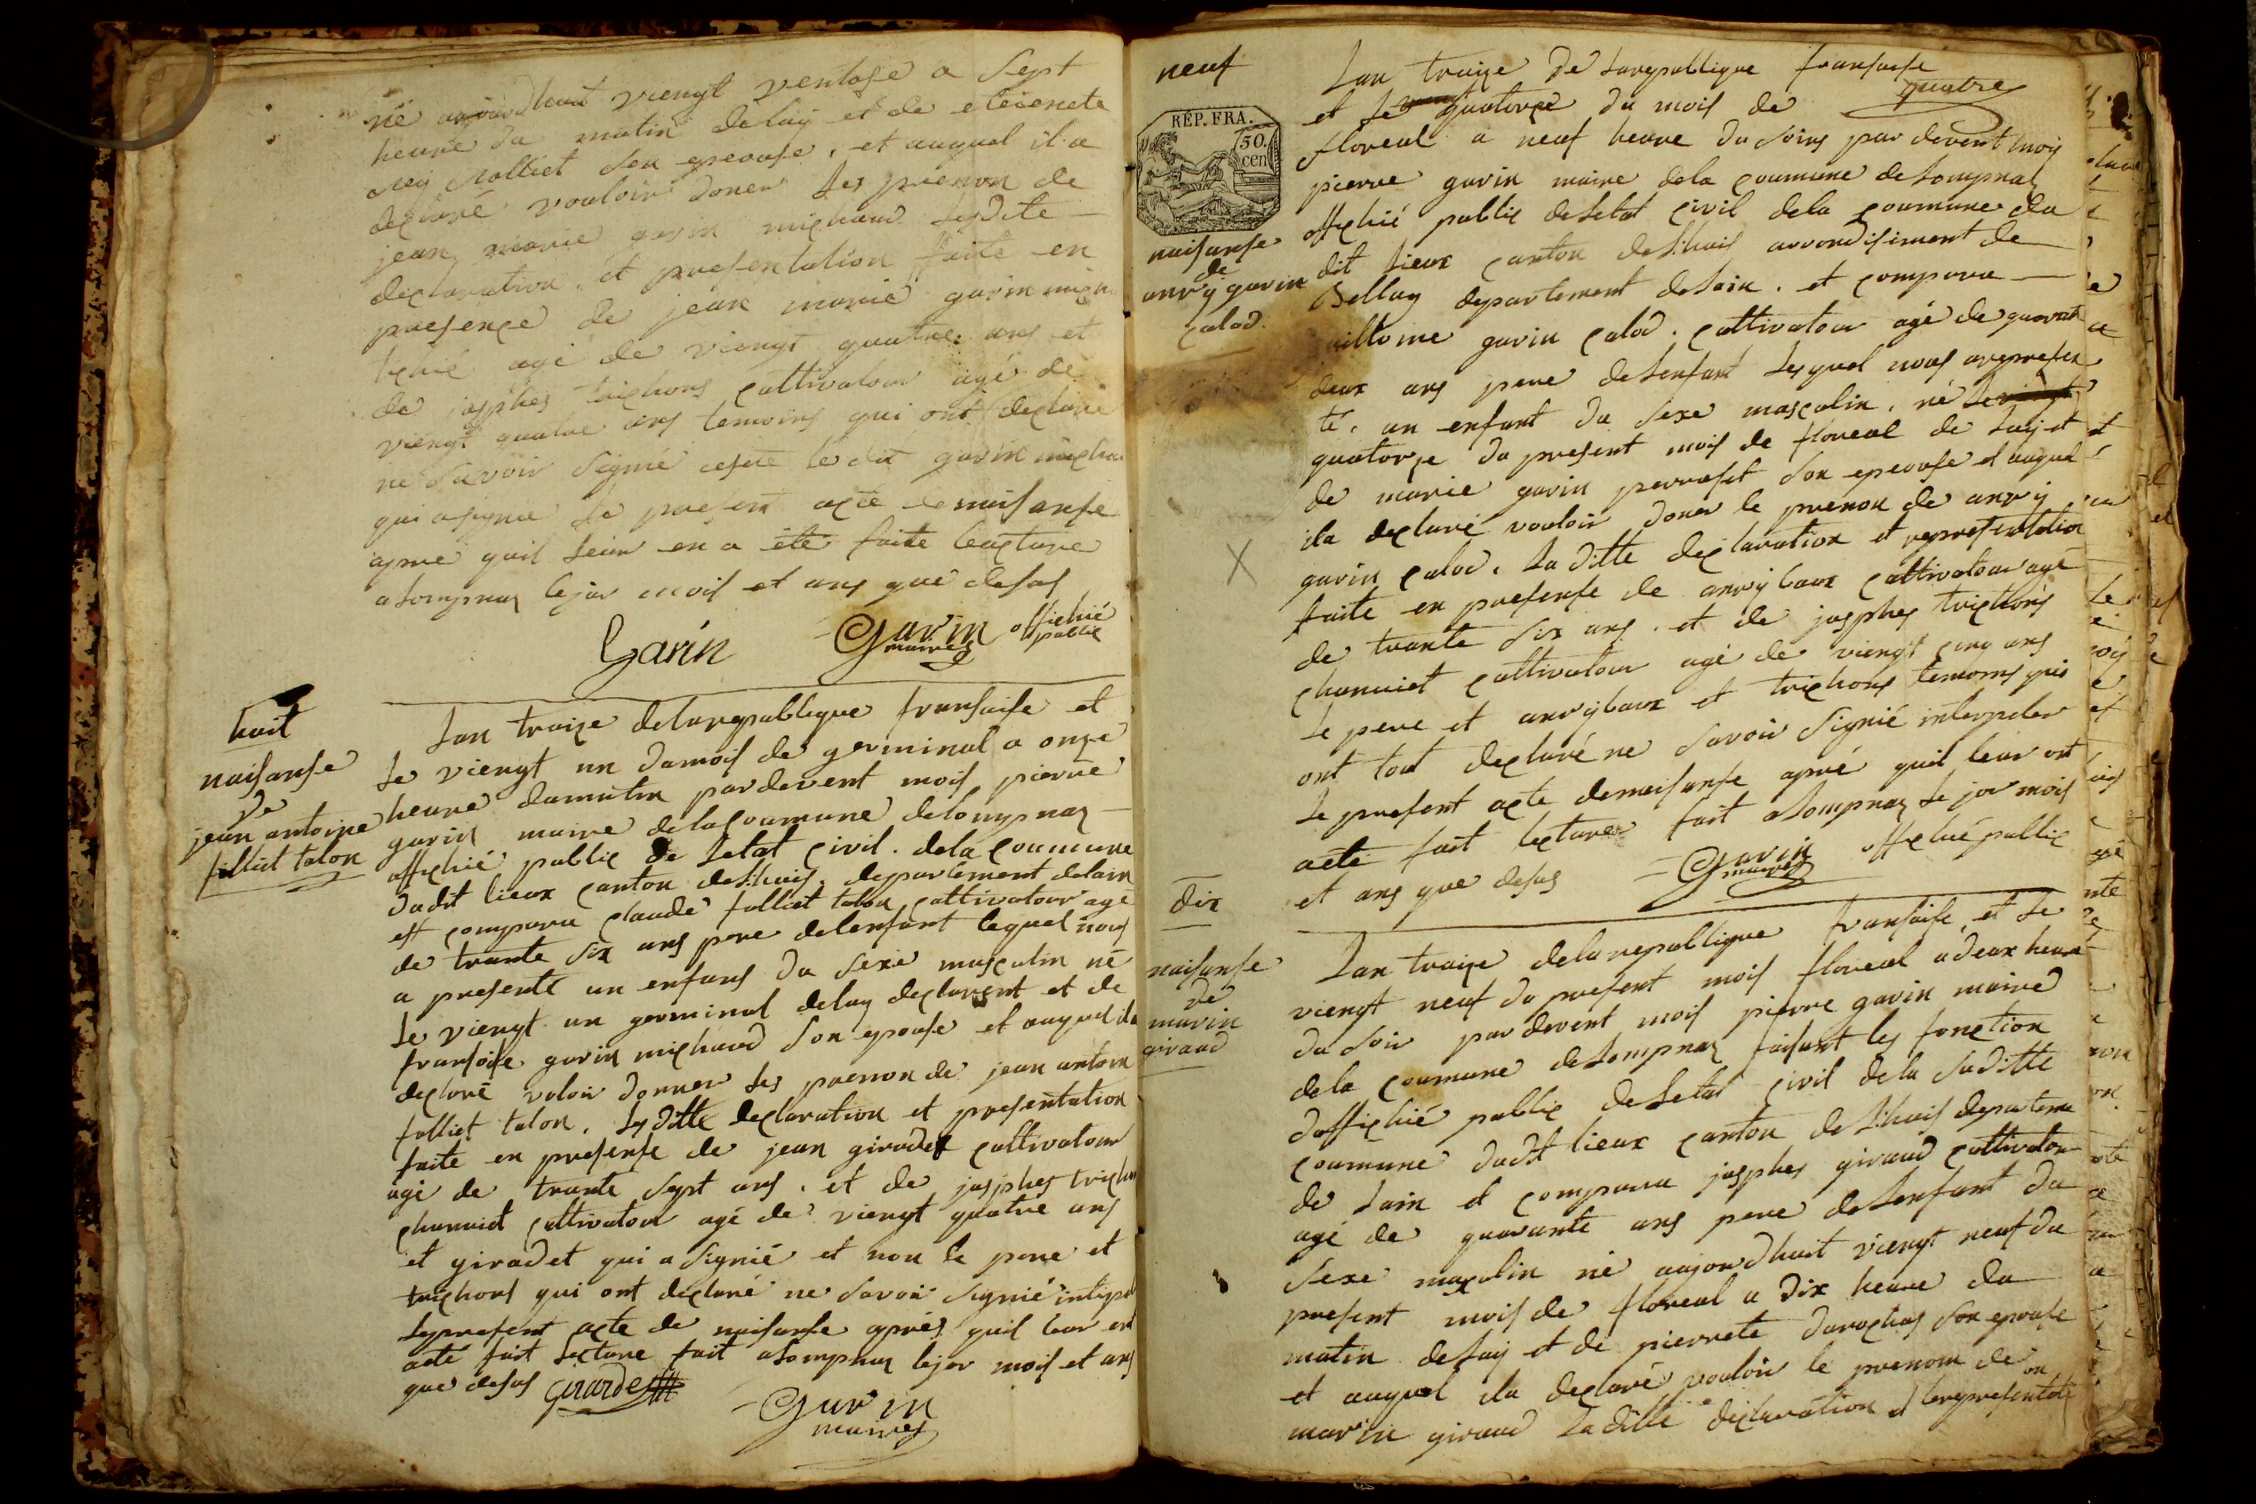 né aujourdhuit viengt ventose a sept
heure du matin deluy et de eteienete
son epeouse, et auquel il a
declaré vouloir doner les prenon de
jean marie garin michaud lesdite
declaration et presentation faite en
presence de jean marie garin
agé de viengt quatre ans et
de josphes trichons cultivatour agé de
viengt quatre ans temoins qui ont declaré
ne savoir signié le dit garin
qui a signié le present acte de naisanse
apré quil leur en a été faite lecture
a Lompnaz lejor mois et ans que desus
Garin
Garin maire offichié public
huit
naisanse
de
jean antoine
folliet talon
Lan traize delarepublique fransaise et
le viengt un dumois de germinal a onze
heure dumatin pardevent mois pierre
garin maire delacoumune delompnaz
offichié public de letat civil. dela coumune
dudit lieux canton delhuis. departement delain
est comparu claude folliet talon cultivatour agé
de trante six ans pere delenfant lequel nous
a presenté un enfans du sexe masculin né
le viengt un germinal deluy declarent et de
fransoise garin michaud son epouse et auquel ila
decloré voloir donner les prenon de jean antoin
folliet talon. lesditte declaration et presentation
faite en presense de jean giradet cultivatour
agé de trante sept ans. et de josphes trichon
chanuiet cultivatour agé de viengt quatre ans
et giradet qui a signié et non le pere et
trichons qui ont decluré ne savoir signié
lepresent acte de naisanse aprés quil leur en
aété fait lecture fait alompnaz lejor mois et ans
que desus Girardet
Garin
maire
neuf
REP. FRA.
50. cen
naisanse
de
anrÿ garin
calod.
Lan traize de larepublique fransaise
et le quatorze du mois de quatre
floreal a neuf heure du soirs par devent mois
pierre garin maire dela coumune delompnaz
offichié public deletat civil dela coumune du
dit lieux canton delhuis arrondisiment de
Bellay departement delain. et comparu
garin calod. cultivatour agé de quarante
deux ans pere delenfant lequel nous apresen
té. un enfant du sexe masculin. né le viengt
quatorze du present mois de floreal de luy et
de marie garin perraset son epeouse et auquel
ila decluré vouloir doner le prenon de anrÿ
garin calod. la ditte declaration et representation
faite en presense de anrÿ baux cultivatour agé
de trante six ans. et de josphes trichons
chanuiet cultivatour agé de viengt cinq ans
le pere et anrÿ baux et trichons temoins qui
ont tout decluré ne savoir signié interpeler
le present acte denaisanse apré quil leur ont
aété fait lecture fait a Lompnaz le jor mois
et ans que desus
Garin maire offichié public
dix
naisanse
de
marin
giraud
Lan traize delarepublique fransaise et le
viengt neuf du present mois floreal a deux heure
du soir par devent mois pierre garin maire
dela coumune delompnaz faisant les fonction
daffichié public deletat civil dela suditte
coumune dudit lieux canton de lhuis departeme
de lain et comparu josphes giraud cultivatour
agé de quarante ans pere delenfant du
sexe masculin né aujourdhuit viengt neuf du
present mois de floreal a dix heure du
matin deluy et de pierrete durochas son epouse
et auquel ila decluré vouloir le prenom de
marin giraud ladite declaration et lerepresentation